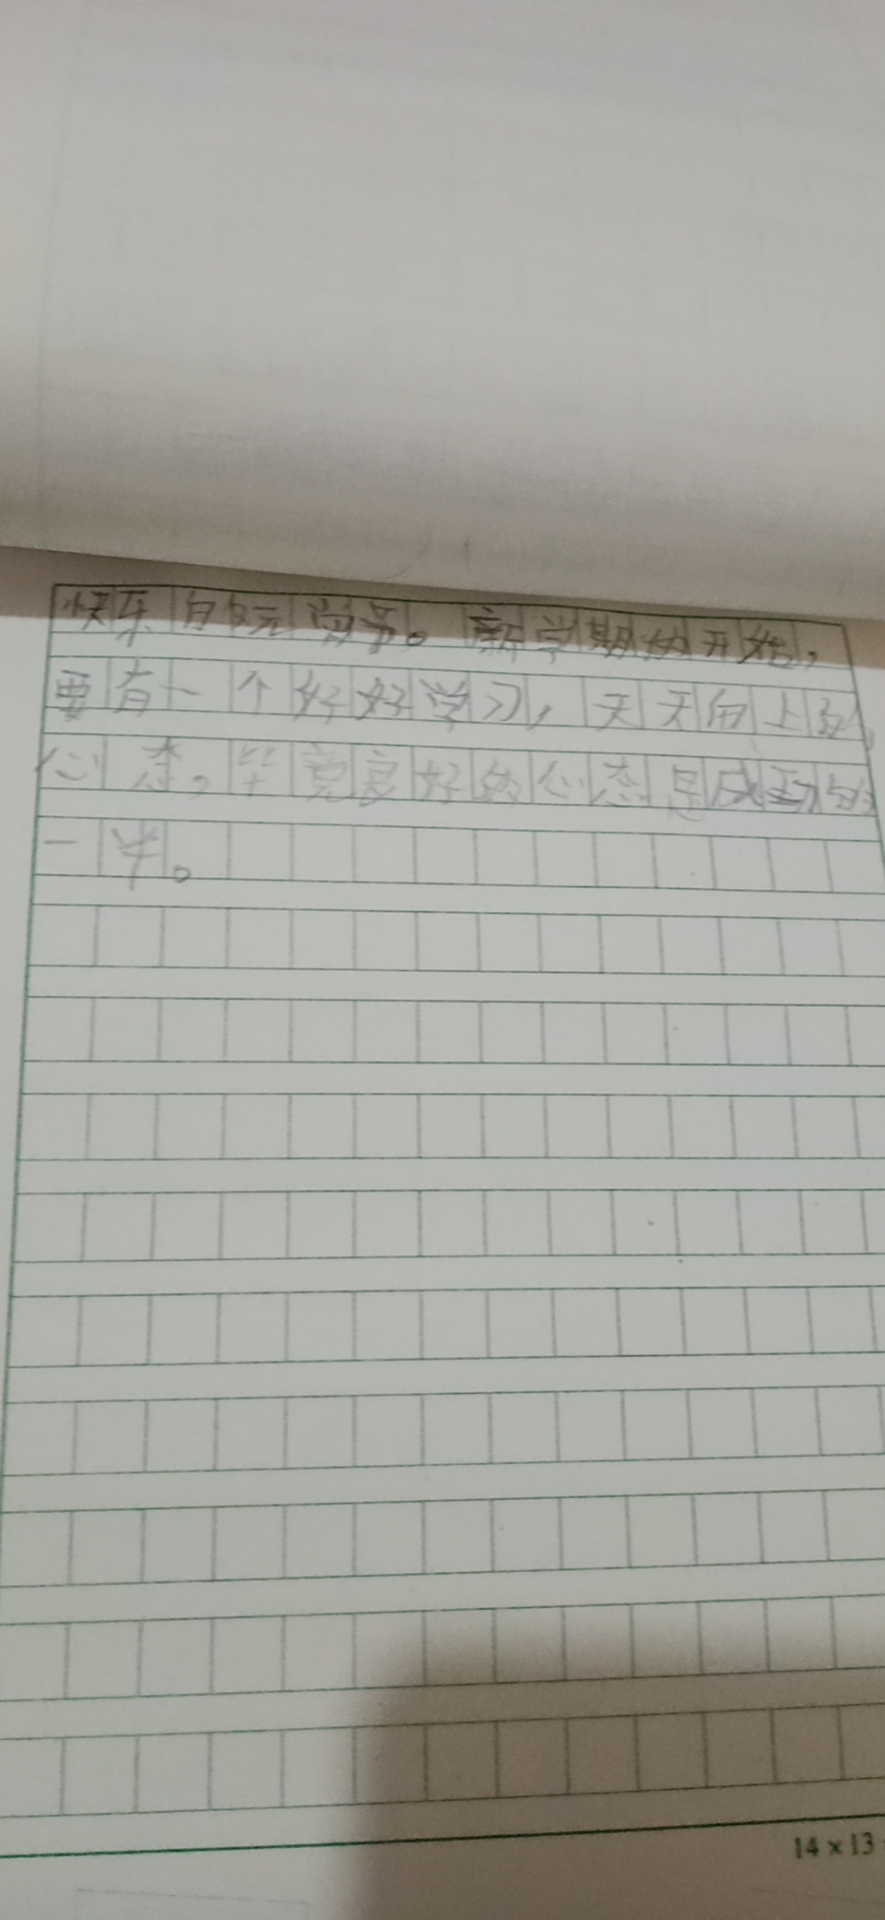 快乐的元宵节。新学期的开始,
要有一个好好学习,天天向上的
心态,毕竟良好的心态是成功的
一半。
14×13